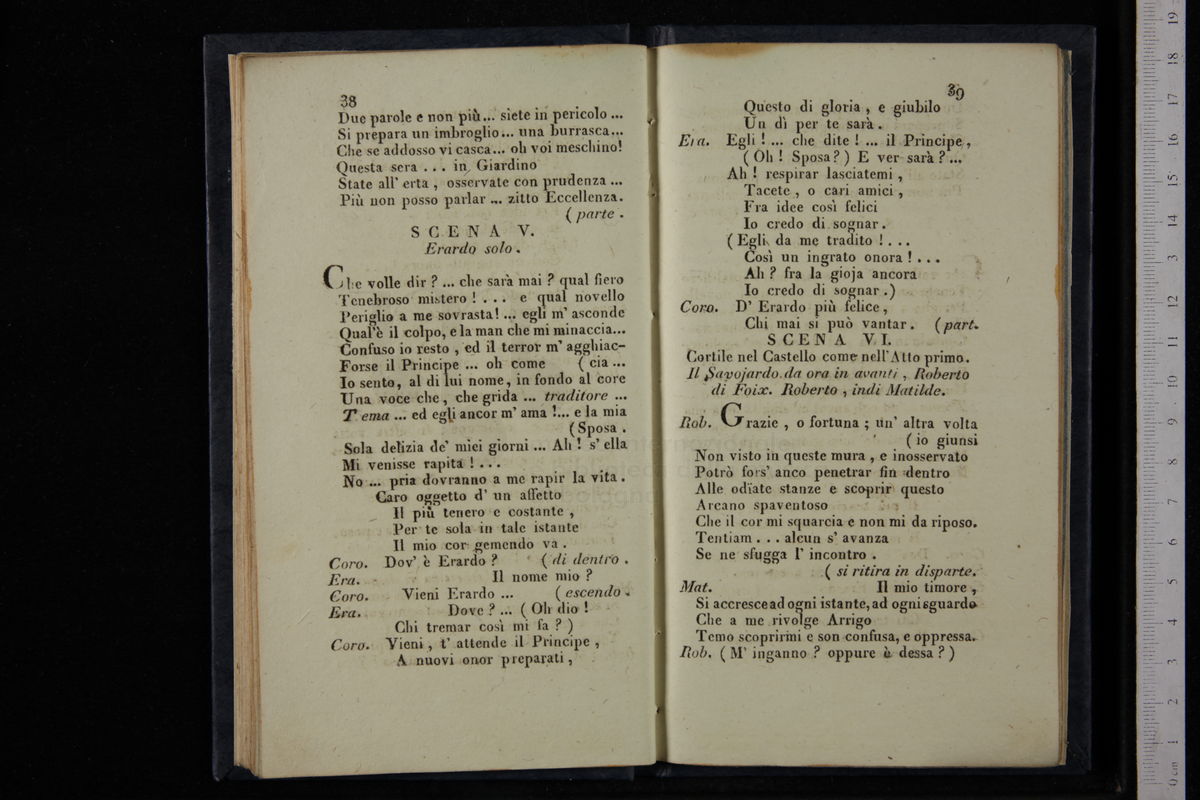 38
Due parole e non più... siete in pericolo ...
Si prepara un imbroglio... una burrasca...
Che se addosso vi casca... oh voi meschino!
Questa sera . . . in Giardino
State all' erta , osservate con prudenza ...
Più non posso parlar ... zitto Eccellenza.
( parte .
SCENA V.
Erardo solo .
Che volle dir ? ... che sarà mai ? qual fiero
Tenebroso mistero ! . . . e qual novello
Periglio a me sovrasta! ... egli m' asconde
Qual'è il colpo, e la man che mi minaccia...
Confuso io resto , ed il terror m' agghiac-
Forse il Principe ... oh come ( cia ...
Io sento, al di lui nome, in fondo al core
Una voce che , che grida ... traditore ...
Tema ... ed egli ancor m' ama !... e la mia
( Sposa .
Sola delizia de' miei giorni ... Ah ! s' ella
Mi venisse rapita ! . . .
No ... pria dovranno a me rapir la vita .
Caro oggetto d' un affetto
Il più tenero e costante ,
Per te sola in tale istante
Il mio cor gemendo va .
Coro. Dov' è Erardo ? ( di dentro .
Era. Il nome mio ?
Coro. Vieni Erardo ... ( escendo .
Era. Dove ? ... ( Oh dio !
Chi tremar così mi fa ? )
Coro. Vieni , t' attende il Principe ,
A nuovi onor preparati ,
39
Questo di gloria , e giubilo
Un dì per te sarà .
Era. Egli ! ... che dite ! ... il Principe ,
( Oh ! Sposa ? ) E ver sarà ? ...
Ah ! respirar lasciatemi ,
Tacete , o cari amici ,
Fra idee così felici
Io credo di sognar .
( Egli da me tradito ! . . .
Così un ingrato onora ! . . .
Ah ? fra la gioja ancora
Io credo di sognar .)
Coro. D' Erardo più felice ,
Chi mai si può vantar . (part.
SCENA VI.
Cortile nel Castello come nell'Atto primo.
Il Savojardo da ora in avanti , Roberto
di Foix. Roberto , indi Matilde.
Rob. Grazie , o fortuna ; un' altra volta
( io giunsi
Non visto in queste mura , e inosservato
Potrò fors' anco penetrar fin dentro
Alle odiate stanze e scoprir questo
Arcano spaventoso
Che il cor mi squarcia e non mi da riposo.
Tentiam . . . alcun s' avanza
Se ne sfugga l' incontro .
( si ritira in disparte.
Mat. Il mio timore ,
Si accresce ad ogni istante, ad ogni sguardo
Che a me rivolge Arrigo
Temo scoprirmi e son confusa, e oppressa.
Rob. ( M' inganno ? oppure è dessa ? )